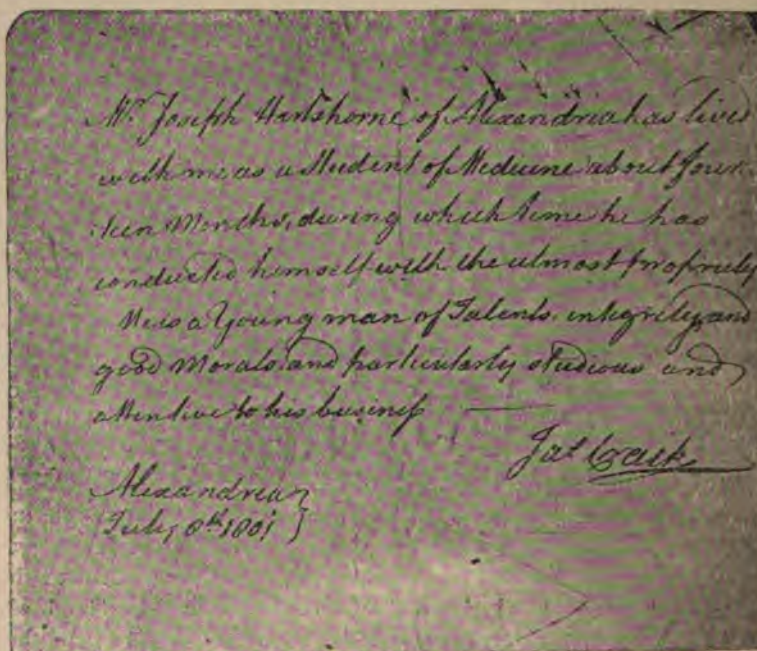 Mr. Joseph Hartshorne of Alexandria has lived
with me as a Student of Medicine about four-
teen Months, during which time he has
conducted himself with the utmost propriety
He is a Young man of Talents, integrity and
good Morals and particularly studious and
attentive to his business —
Jas Craik
Alexandria
July 8th 1801